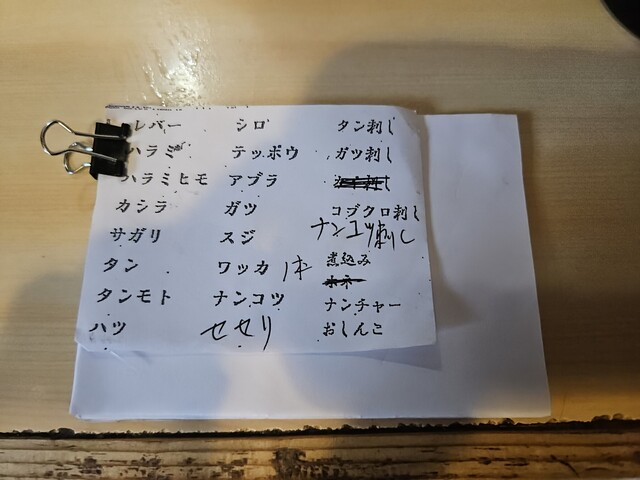 レバー
ハラミ
ハラミヒモ
カシラ
サガリ
タン
タンモト
ハツ
シロ
テッポウ
アブラ
ガツ
スジ
ワッカ 1本
ナンコツ
セセリ
タン刺し
ガツ刺し
コブクロ刺し
ナンコツ刺し
煮込み
ナンチャー
おしんこ